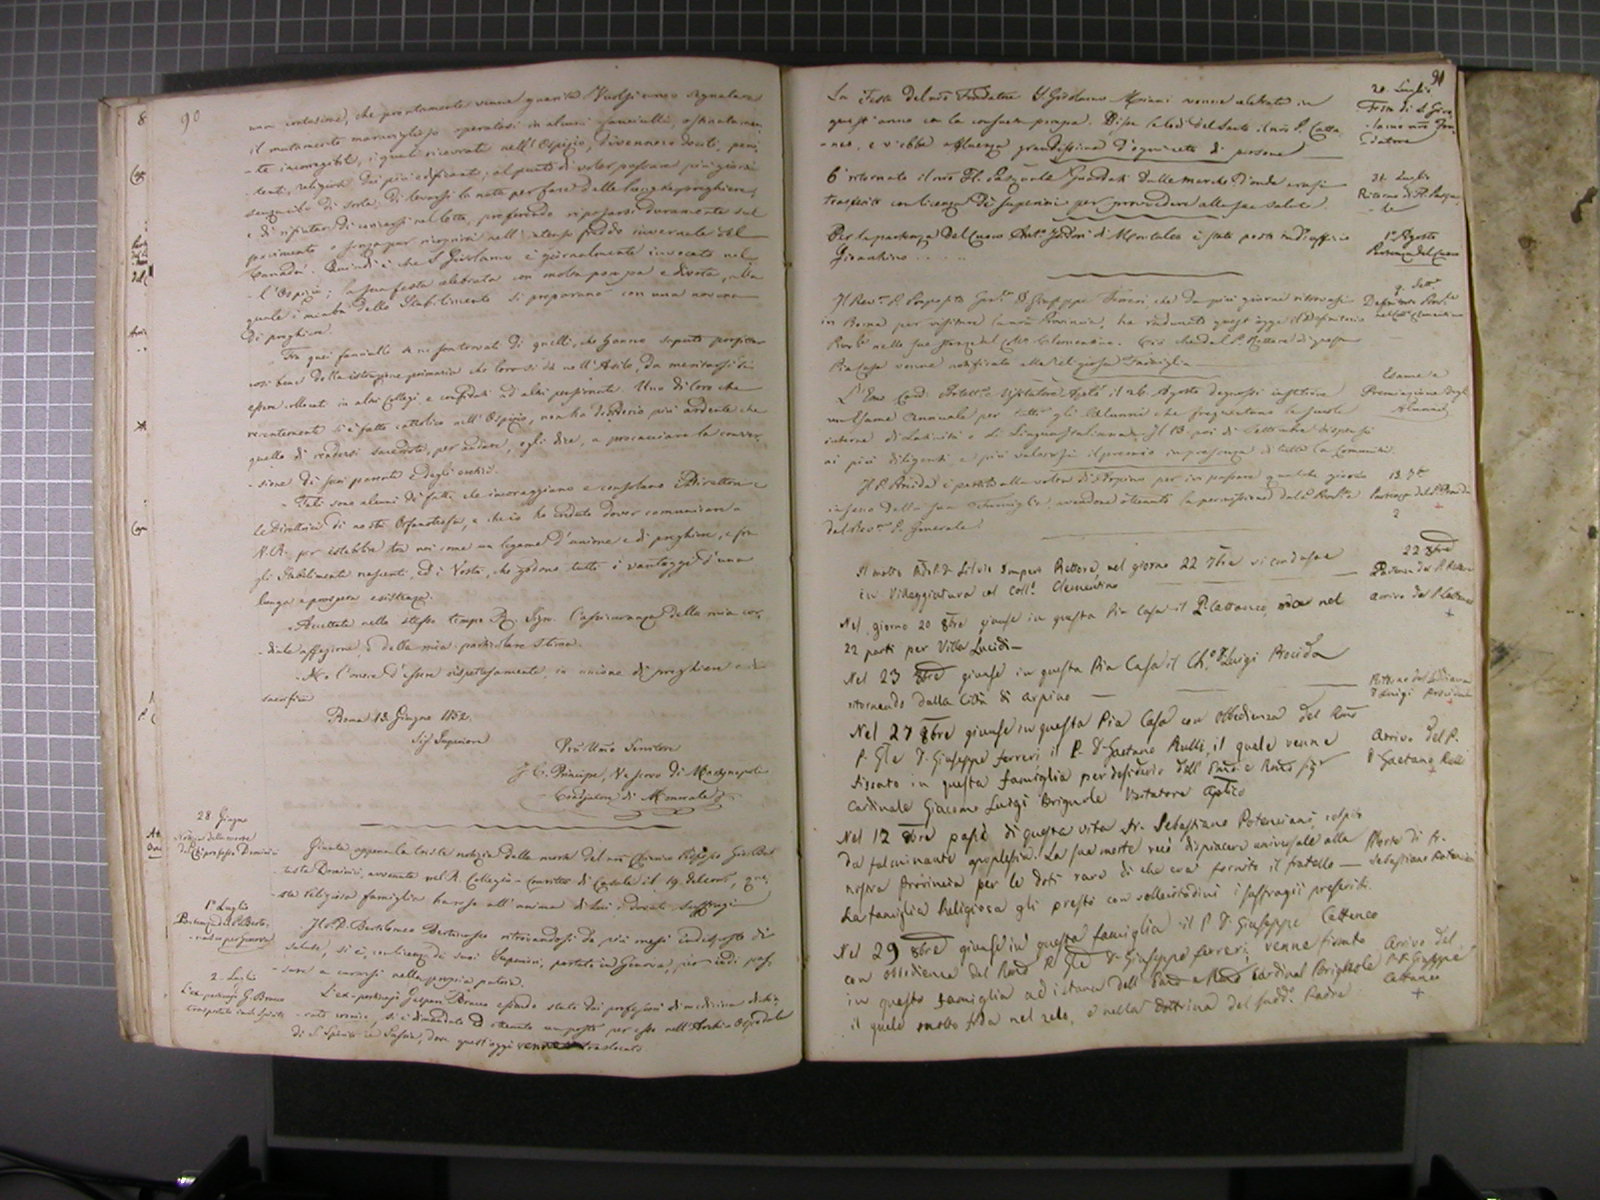 90
una contusione, che prontamente venne guarita
il mutamento maraviglioso operatosi in alcuni fanciulli, ostinatamen
te incorreggibili, i quali ricovrati nell'Ospizio, divennero dociti, peni
tenti, religiosi dei più edificanti; al punto di voler passare più giorni
senza cibo di sorta, di levarsi la notte per fare delle lunghe preghiere,
e di rifiutar di coricarsi nel letto, preferendo riposarsi duramente sul
pavimento e senza pur ricoprirsi nell'intenso freddo invernale del
Canadà. Quindi è che S. Girolamo è giornalmente invocato nel
l'Ospizio; la sua festa celebrata con molta pompa e divota, alla
quale i membri dello Stabilimento si preparano con una novena
di preghiere.
Tra quei fanciulli se ne son trovati di quelli, che hanno saputo profittar
così bene della istruzione primaria che loro si dà nell'Asilo, da meritarsi di
essere collocati in alcuni Collegi e confidati ad altri
Uno di loro che
recentemente si è fatto cattolico nell'Ospizio, non ha desiderio più ardente che
quello di rendersi sacerdote, per andare, egli dice, a procacciare la conver
sione di suoi parenti
Tali sono alcuni di fatti, che incoraggiano e consolano i Direttori e
le Direttrici di nostro Orfanotrofio, e che io ho creduto dover comunicare a
V. R. per istabilir tra noi come un legame d'unione e di preghiere, e fra
gli Stabilimenti nascenti, ed i Vostri, che godono tutti i vantaggi d'una
lunga e prospera esistenza.
Accettate nello stesso tempo R. Sign. l'assicuranza della mia cor
diale affezione e della mia particolare stima.
Ho l'onore d'essere rispettosamente, in unione di preghiere e di
sacrifizi
Roma 13 Giugno 1852.
Sig. Superiore
Dev.mo Umo Servitore
J. C. Principe, Vescovo di
Coadjutore di Monreale
28 Giugno
Notizia della morte
del Ch. professo Dominici
Giunta appena la trista notizia della morte del nro Chierico Professo Gio. Bat
tista Dominici, avvenuta nel R. Collegio-Convitto di Casale il 19 del corr., que
sta religiosa famiglia ha reso all'anima di lui i dovuti suffragi
1º Luglio
Partenza del P. Berta
per Genova
Il P. D. Bartolomeo ritrovandosi da più mesi indisposto di
salute, si è, con licenza de' suoi Superiori, portato in Genova, per indi pas
sare a curarsi nella propria patria.
2. Luglio
L'ex portinajo G. Bracco
trasportato in S. Spirito
L'ex-portinajo Gaspare Bracco essendo stato dai professori di medicina dichia
rato cronico, si è dimandato ed ottenuto un posto per esso nell'Archio Ospedale
di S. Spirito in Sassia, dove quest'oggi venne traslocato
91
La Festa del nro Fondatore S. Girolamo Miani venne celebrata in
quest'anno con la consueta pompa. Disse le lodi del Santo il nro P. Catta
neo, e v'ebbe affluenza grandissima d'ogni ceto di persone
20. Luglio
Festa di S. Giro
lamo nro Fon
datore
È ritornato il nro Fl. Pasquale Guardati dalle Marche d'onde erasi
trasferito con licenza di Superiori per provvedere alla sua salute.
21. Luglio
Ritorno di Fl. Pasqua
le
Per la partenza del Cuoco Ant.º di Montaleo è stato posto nell'officio
Gioacchino . . . . .
1º Agosto
Partenza del Cuoco
Il Rev.mo P. Preposito Gen.le D. Giuseppe Ferreri, che da più giorni ritrovasi
in Roma per visitare la nra Provincia, ha radunato quest'oggi il Definitorio
Prov.le nelle sue stanze del Coll.º Clementino. Ciò che dal P. Rettore di questa
Pia Casa venne notificato alla religiosa Famiglia
9. detto
Definitorio Prov.le
nel Coll.º Clementino
L'Emo Card. Protett.e Visitatore Aplico il 26 Agosto degnossi assistere
un Esame annuale per tutti gli Alunni che frequentano le scuole
interne di Latinità e di Lingua Italiana. Il 13. poi di Settembre dispensò
ai più diligenti, e più valorosi il premio in presenza di tutta la Comunità.
Esame e
Premiazione degli
Alunni
Il P. Procida è partito alla volta di Arpino per ivi passare qualche giorno
in seno della sua Famiglia, avendone ottenuto la permissione dal P. Prov.le e
dal Rev.mo P. Generale.
13. 7bre
Partenza del P. Procida
Il molto Rdo P. D. Silvio Imperi Rettore nel giorno 22 7bre si condusse
in Villeggiatura col Coll.º Clementino
22 8bre
Partenza del P. Rettore
Nel giorno 20 8bre giunse in questa Pia Casa il P. Cattaneo, che nel
22 partì per Villa Lucidi
Arrivo del P. Cattaneo
Nel 23 8bre giunse in questa Pia Casa il Ch.º D. Luigi Procida
ritornando dalla Città di Arpino
Ritorno del
D. Luigi Procida
Nel 27 8bre giunse in questa Pia Casa con obbedienza del Rmo
P. Gle D. Giuseppe Ferreri il P. D. Gaetano Rulli, il quale venne
fissato in questa famiglia per desiderio dell'Emo e Rmo Sigr
Cardinale Giacomo Luigi Brignole Visitatore Aplico
Arrivo del P.
D. Gaetano Rulli
Nel 12 8bre passò di questa vita Fr. Sebastiano Potenziani colpito
da fulminante apoplesia. La sua morte recò dispiacere universale alla
nostra Provincia per le doti rare di che era fornito il fratello —
La famiglia Religiosa gli prestò con sollecitudine i suffragii prescritti.
Morte di Fr.
Sebastiano Potenziani
Nel 29 8bre giunse in questa famiglia il P. D. Giuseppe Cattaneo
con obbedienza del Rmo P. Gle D. Giuseppe Ferreri, venne fissato
in questa famiglia ad istanza dell'Emo e Rmo Cardinal Brignole
il quale molto fida nel zelo, e nella dottrina del sudd.º Padre.
Arrivo del
P. D. Giuseppe
Cattaneo